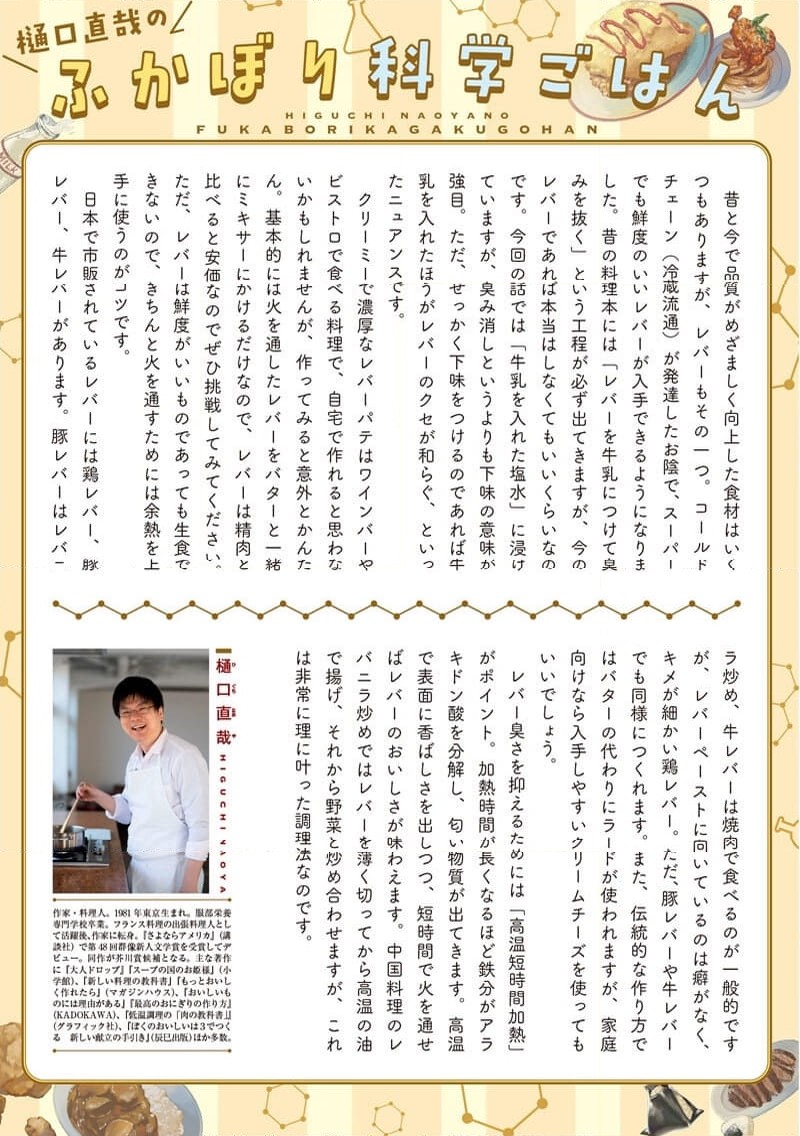 樋口直哉の
ふかぼり科学ごはん
HIGUCHI NAOYANO
FUKABORIKAGAKUGOHAN
昔と今で品質がめざましく向上した食材はいく
つもありますが、レバーもその一つ。コールド
チェーン（冷蔵流通）が発達したお陰で、スーパー
でも鮮度のいいレバーが入手できるようになりま
した。昔の料理本には「レバーを牛乳につけて臭
みを抜く」という工程が必ず出てきますが、今の
レバーであれば本当はしなくてもいいくらいなの
です。今回の話では「牛乳を入れた塩水」に浸け
ていますが、臭み消しというよりも下味の意味が
強目。ただ、せっかく下味をつけるのであれば牛
乳を入れたほうがレバーのクセが和らぐ、といっ
たニュアンスです。
クリーミーで濃厚なレバーパテはワインバーや
ビストロで食べる料理で、自宅で作れると思わな
いかもしれませんが、作ってみると意外とかんた
ん。基本的には火を通したレバーをバターと一緒
にミキサーにかけるだけなので、レバーは精肉と
比べると安価なのでぜひ挑戦してみてください。
ただ、レバーは鮮度がいいものであっても生食で
きないので、きちんと火を通すためには余熱を上
手に使うのがコツです。
日本で市販されているレバーには鶏レバー、豚
レバー、牛レバーがあります。豚レバーはレバニ
ラ炒め、牛レバーは焼肉で食べるのが一般的です
が、レバーペーストに向いているのは癖がなく、
キメが細かい鶏レバー。ただ、豚レバーや牛レバー
でも同様につくれます。また、伝統的な作り方で
はバターの代わりにラードが使われますが、家庭
向けなら入手しやすいクリームチーズを使っても
いいでしょう。
レバー臭さを抑えるためには「高温短時間加熱」
がポイント。加熱時間が長くなるほど鉄分がアラ
キドン酸を分解し、匂い物質が出てきます。高温
で表面に香ばしさを出しつつ、短時間で火を通せ
ばレバーのおいしさが味わえます。中国料理のレ
バニラ炒めではレバーを薄く切ってから高温の油
で揚げ、それから野菜と炒め合わせますが、これ
は非常に理に叶った調理法なのです。
樋口直哉 HIGUCHI NAOYA
作家・料理人。1981年東京生まれ。服部栄養
専門学校卒業。フランス料理の出張料理人とし
て活躍後、作家に転身。『さよならアメリカ』（講
談社）で第48回群像新人文学賞を受賞してデ
ビュー。同作が芥川賞候補となる。主な著作
に『大人ドロップ』『スープの国のお姫様』（小
学館）、『新しい料理の教科書』『もっとおいし
く作れたら』（マガジンハウス）、『おいしいも
のには理由がある』『最高のおにぎりの作り方』
（KADOKAWA）、『低温調理の「肉の教科書』』
（グラフィック社）、『ぼくのおいしいは3でつく
る　新しい献立の手引き』（辰巳出版）ほか多数。
MILK